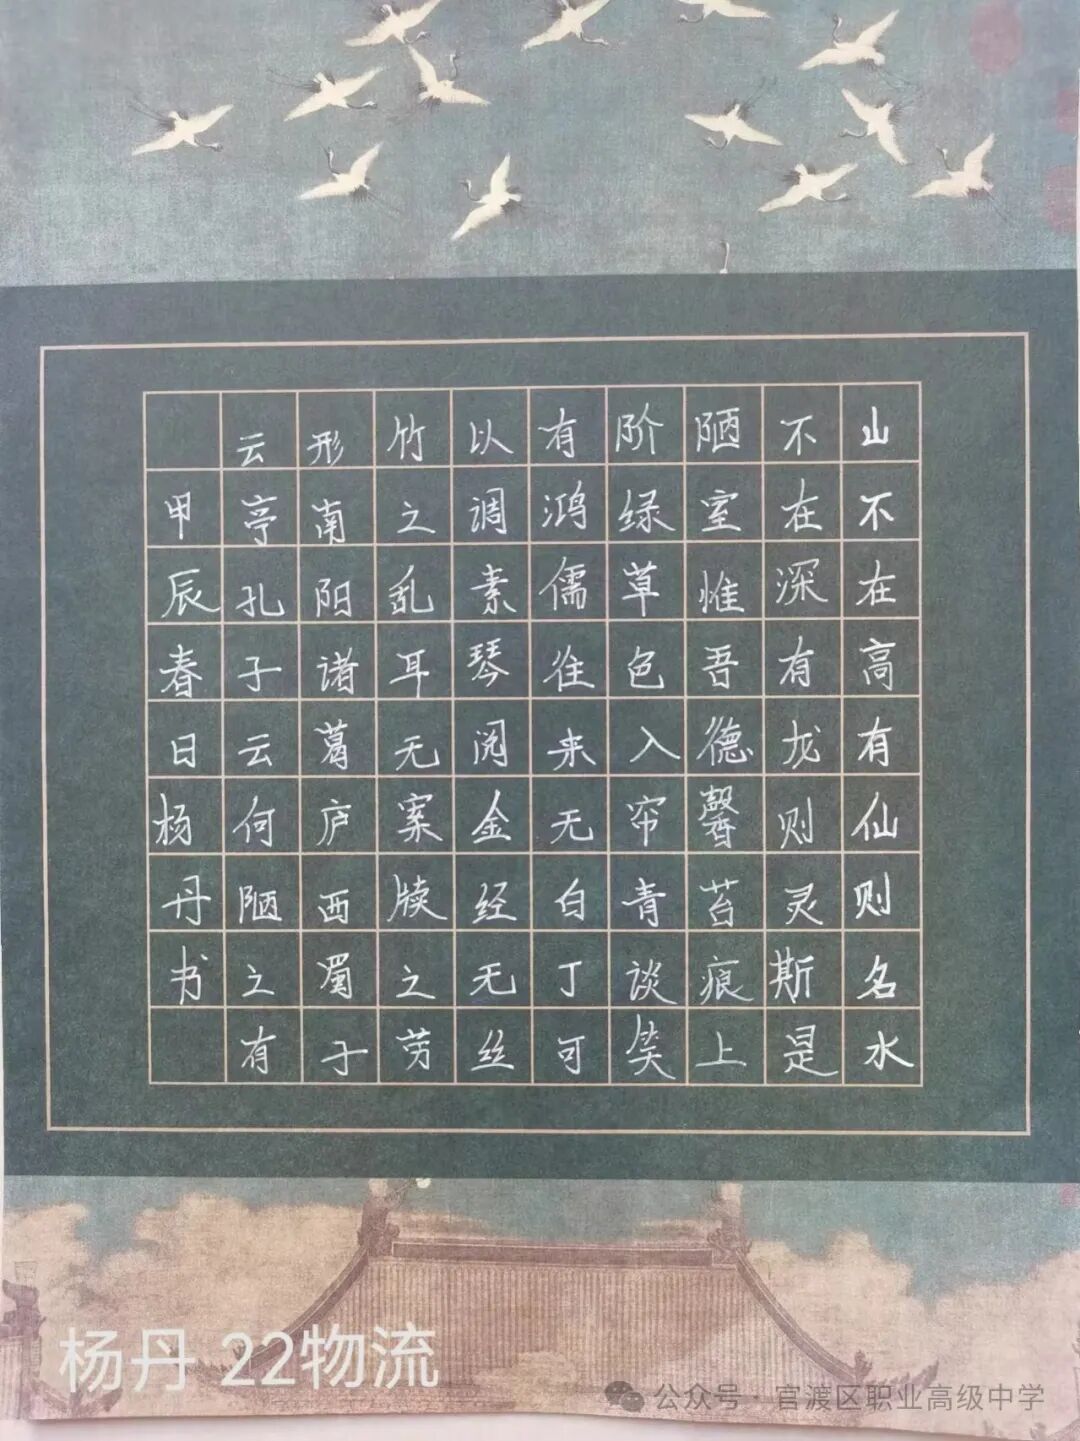 山不在高有仙则名水
不在深有龙则灵斯是
陋室惟吾德馨苔痕上
阶绿草色入帘青谈笑
有鸿儒往来无白丁可
以调素琴阅金经无丝
竹之乱耳无案牍之劳
形南阳诸葛庐西蜀子
云亭孔子云何陋之有
甲辰春日杨丹书
杨丹 22物流
公众号·官渡区职业高级中学